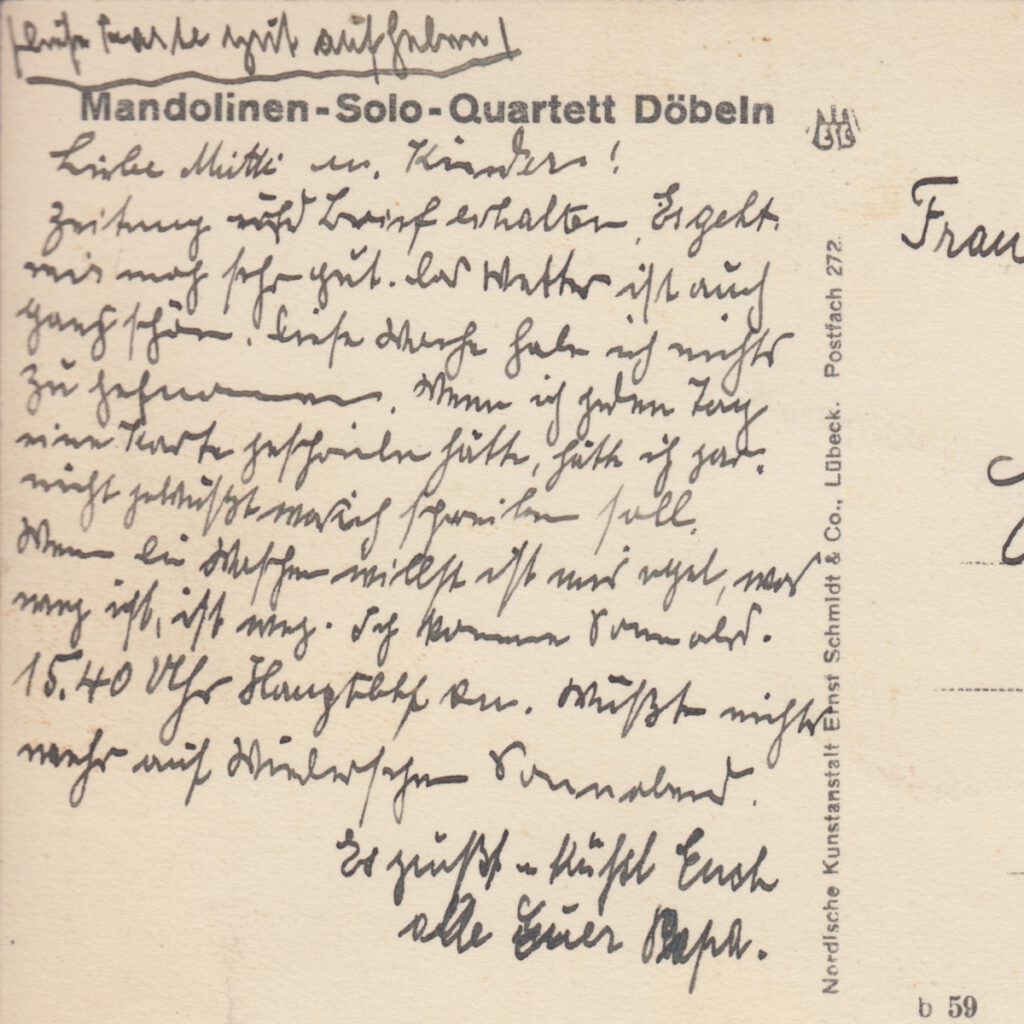 (Diese Karte gut aufheben)
Mandolinen-Solo-Quartett Döbeln
Liebe Mutti u. Kinder!
Zeitung und Brief erhalten. Es geht
mir noch sehr gut. Das Wetter ist auch
ganz schön. Diese Woche habe ich nichts
zu
Wenn ich jeden Tag
eine Karte geschrieben hätte, hätte ich gar
nicht gewußt was ich schreiben soll.
Wenn Du Waschen willst ist mir egal, was
weg ist, ist weg. Ich komme Sonnabd.
15.40 Uhr Hauptbhf an. Wüßte nichts
mehr auf Wiedersehen Sonnabend.
Es grüßt u küßt Euch
alle Euer Papa.
Nordische Kunstanstalt Ernst Schmidt & Co., Lübeck. Postfach 272.
Frau
b 59